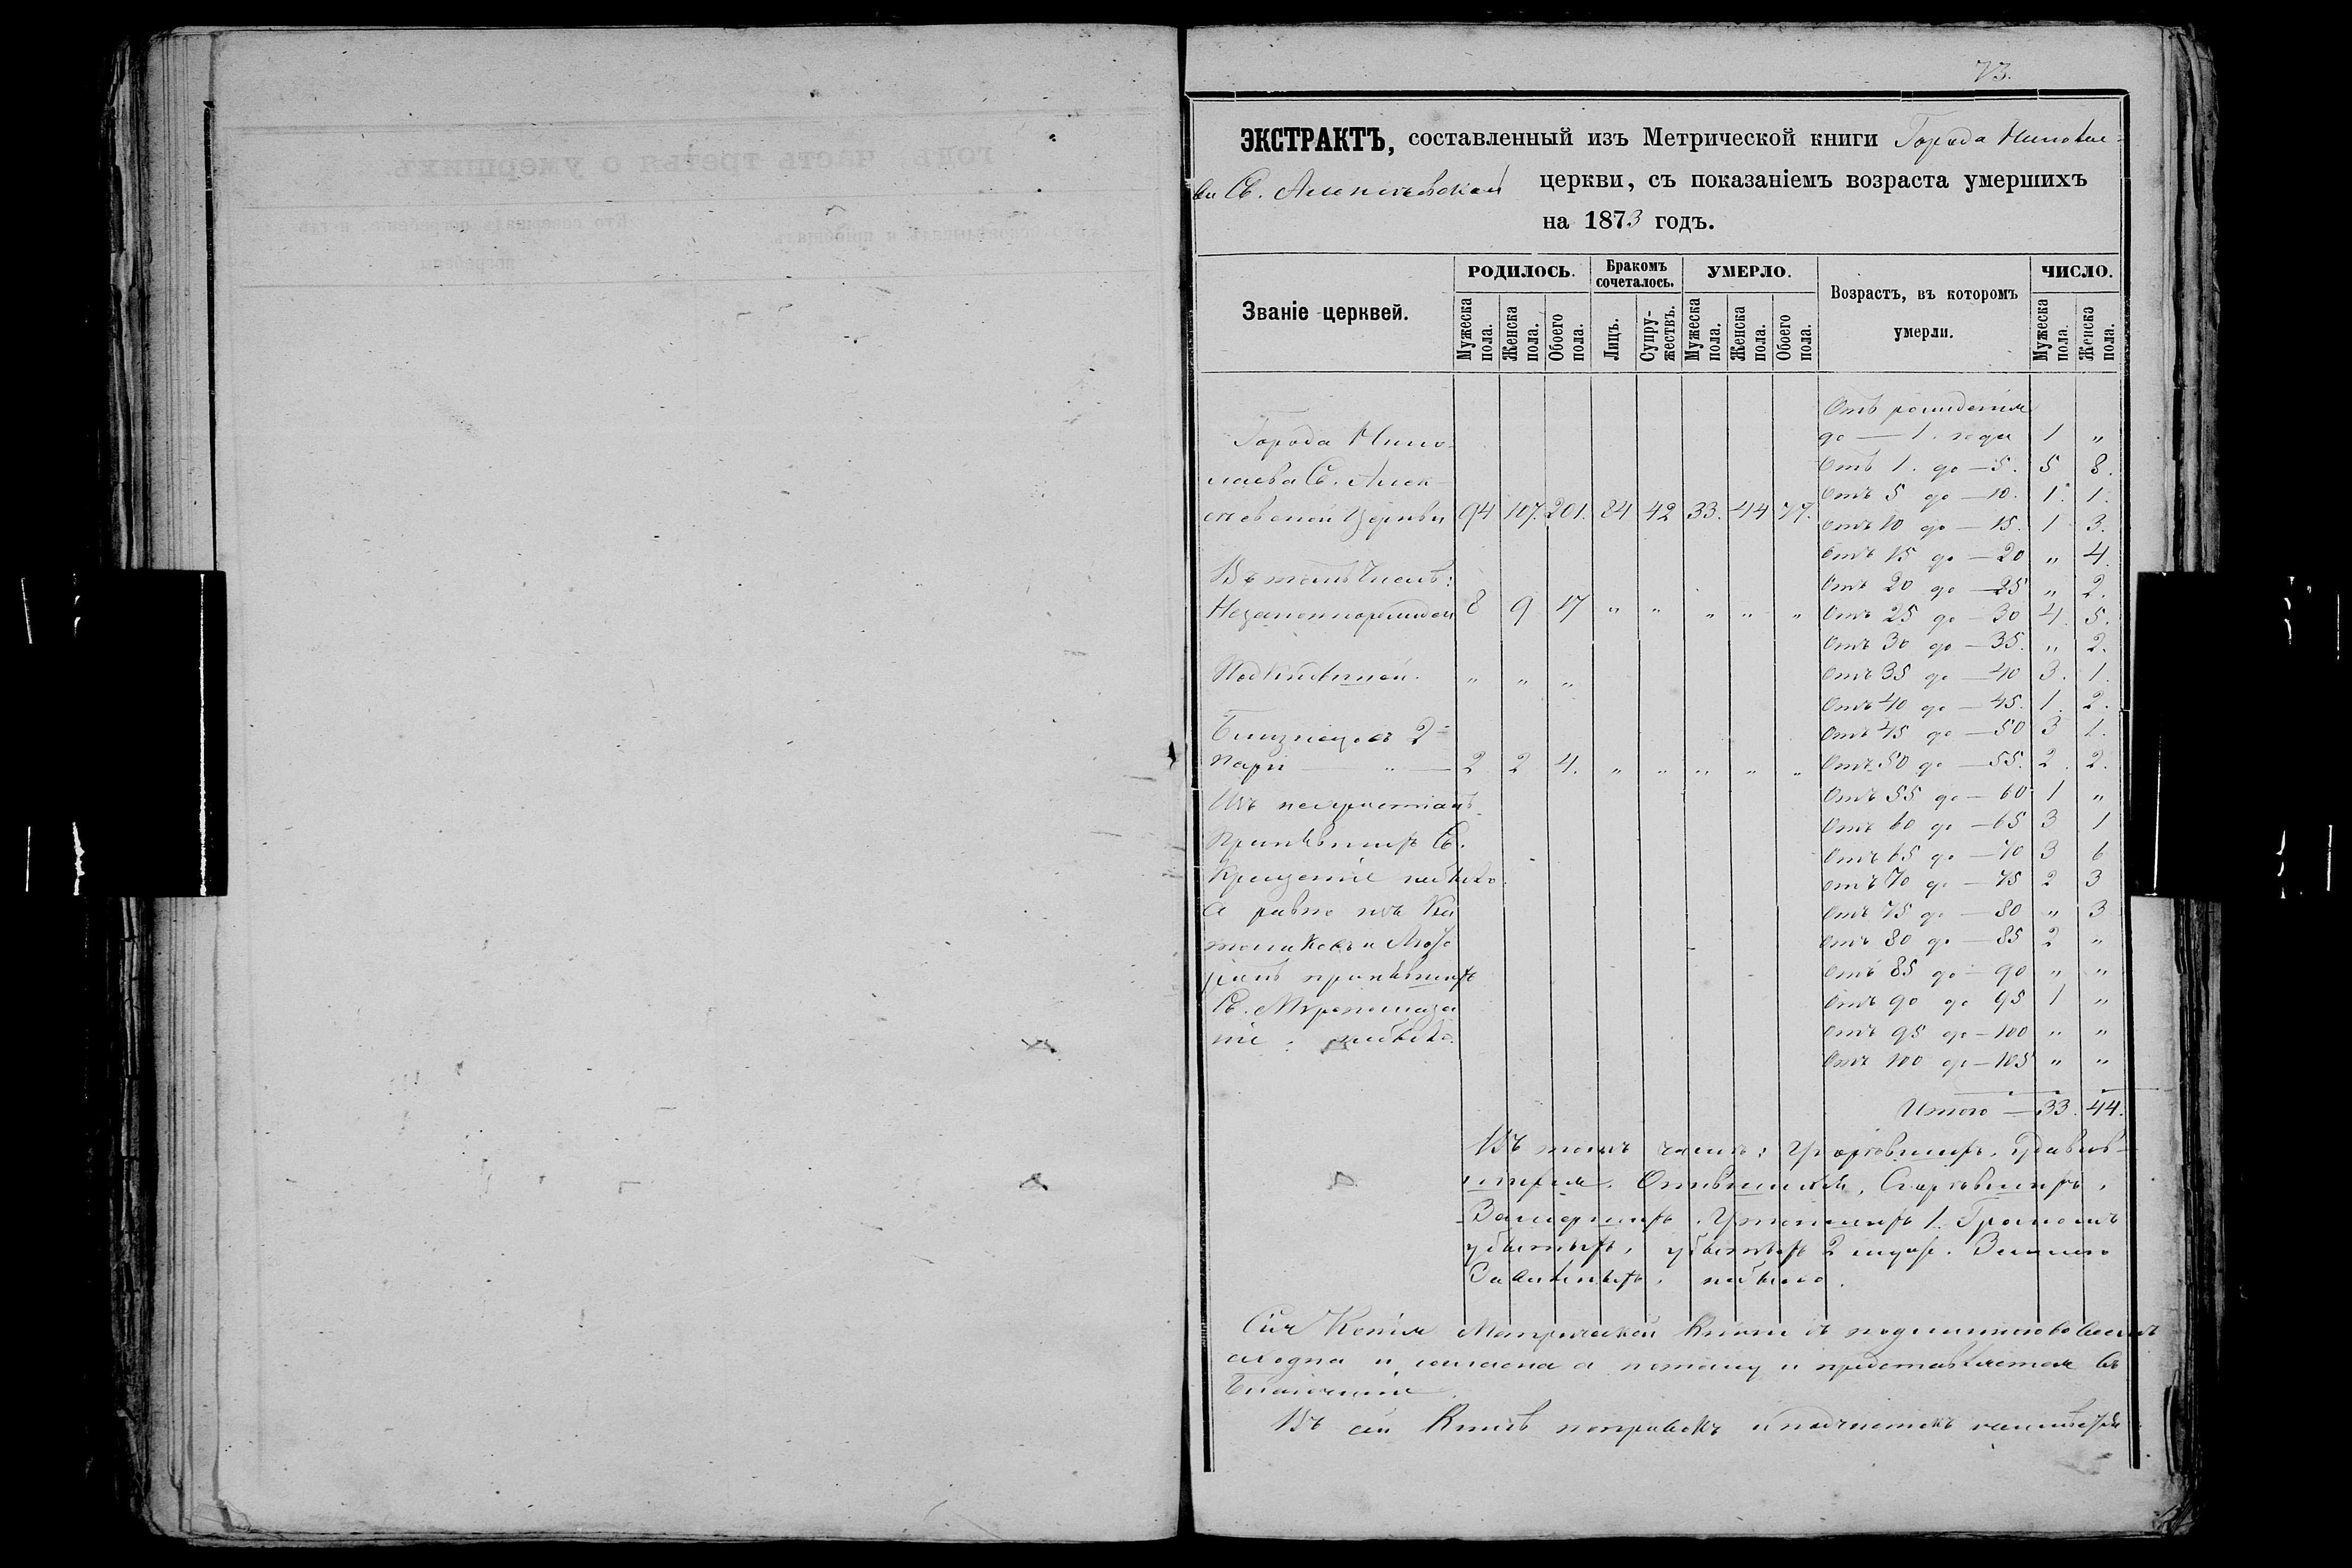 73.
ЭКСТРАКТЪ, составленный изъ Метрической книги Города Никола-
ва Св. Алексѣевской церкви, съ показаніемъ возраста умершихъ
на 1873 годъ.
Званіе церквей.
РОДИЛОСЬ.
Бракомъ сочеталось.
УМЕРЛО.
Возрастъ, въ которомъ умерли.
ЧИСЛО.
Мужеска пола.
Женска пола.
Обоего пола.
Лицъ.
Супружествъ.
Мужеска пола.
Женска пола.
Обоего пола.
Мужеска пола.
Женска пола.
Города Нико-
лаева Св. Алек-
сѣевской Церкви 94 107. 201. 84 42 33. 44 77.
Въ томъ числѣ:
Незаконнорожден 8 9 17 „ „ „ „ „
Подкидышей. „ „ „
Близнецовъ 2
пары „ — 2 2 4. „ „ „ „ „
Изъ нехристіанъ
принявшихъ Св.
Крещеніе небыло.
А равно изъ Ка
толиковъ и Люте
ранъ принявшихъ
Св. Мѵропомаза
ніе небыло.
Отъ рожденія
до — 1. года 1 „
Отъ 1. до — 5. 5 8.
Отъ 5 до — 10. 1. 1.
Отъ 10 до — 15. 1 3.
Отъ 15 до — 20 „ 4.
Отъ 20 до — 25 „ 2.
Отъ 25 до — 30 4. 5.
Отъ 30 до — 35. „ 2.
Отъ 35 до — 40 3. 1.
Отъ 40 до — 45. 1. 2.
Отъ 45 до — 50 3 1.
Отъ 50 до — 55. 2. 2.
Отъ 55 до — 60 1 „
Отъ 60 до — 65 3 1
Отъ 65 до — 70 3 6
Отъ 70 до — 75 2 3
Отъ 75 до — 80 „ 3
Отъ 80 до — 85 2 „
Отъ 85 до — 90 „ „
Отъ 90 до 95 1 „
Отъ 95 до — 100 „ „
Отъ 100 до — 105 „ „
Итого — 33. 44.
Въ томъ числѣ: Удавив-
шихся. Опившихся, Сгорѣвшихъ,
Замерзшихъ. Утопшихъ 1. Громомъ
убитыхъ, убитыхъ 2 муж. Землею
Заваленныхъ, небыло.
Сія Копія Метрической Книги съ подлинною во всемъ
сходна и согласна а потому и представляется въ
Благочиніе
Въ сей Книгѣ поправокъ и подчистокъ